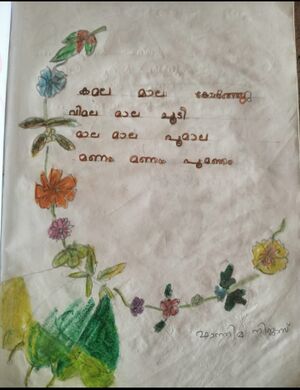 കമല മാല കോർത്തു
വിമല മാല ചൂടി
മാല മാല പൂമാല
മണം മണം പൂമണം